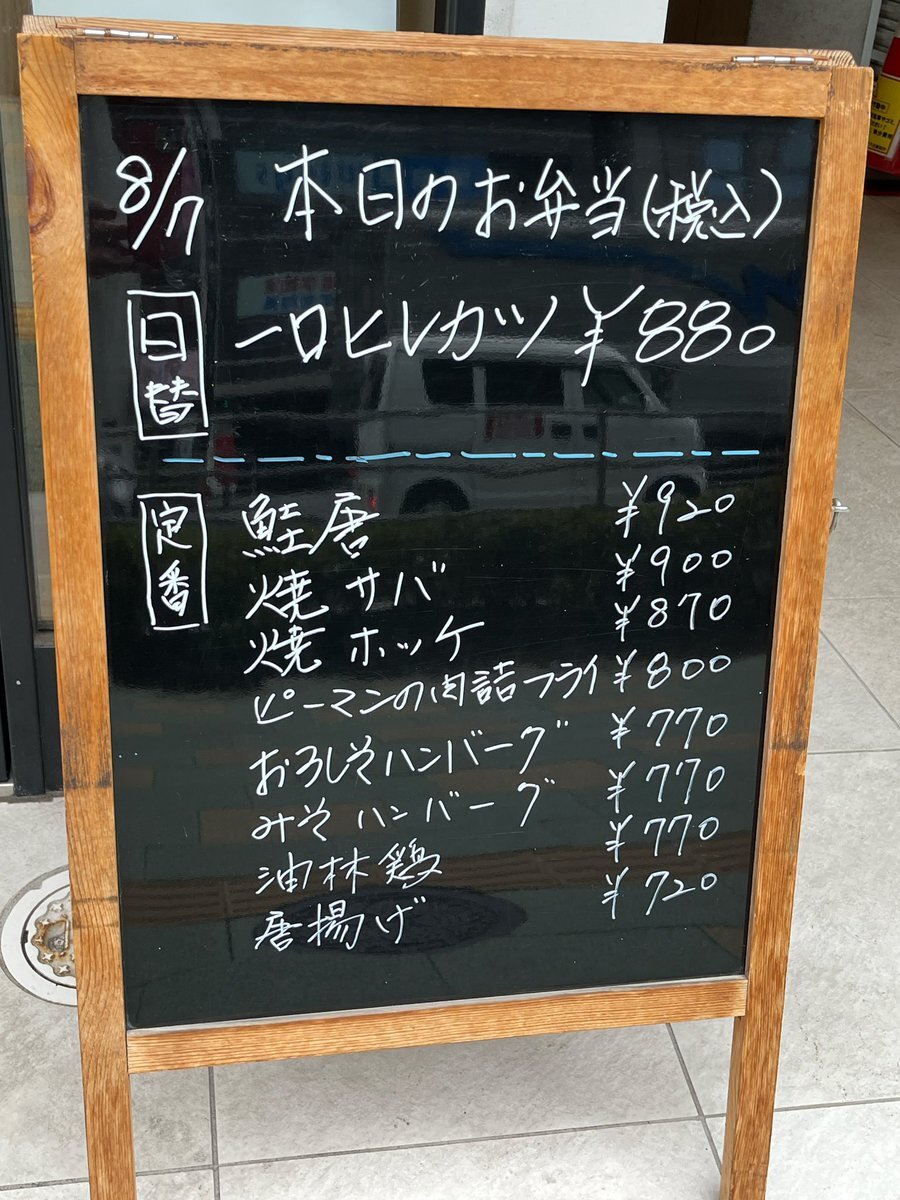 8/7 本日のお弁当(税込)
日替 一口ヒレカツ ¥880
定番 鮭唐 ¥920
焼サバ ¥900
焼ホッケ ¥870
ピーマンの肉詰フライ ¥800
おろしそハンバーグ ¥770
みそハンバーグ ¥770
油林鶏 ¥770
唐揚げ ¥720